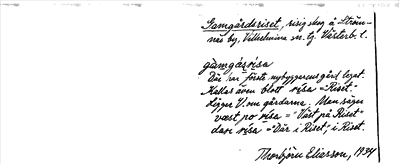 Gamgårdsriset, risig skog å Ström-
näs by, Vilhelmina sn. Lj Västerb. l.
gàmgáṣrisa
Där har förste nybyggarens gård legat.
Kallas även blott risa = Riset.
Ligger V. om gårdarna. Man säger
väst po risa = "Väst på Riset"
dar i risa = "Där i Riset", i Riset.
Thorbjörn Eliasson, 1934